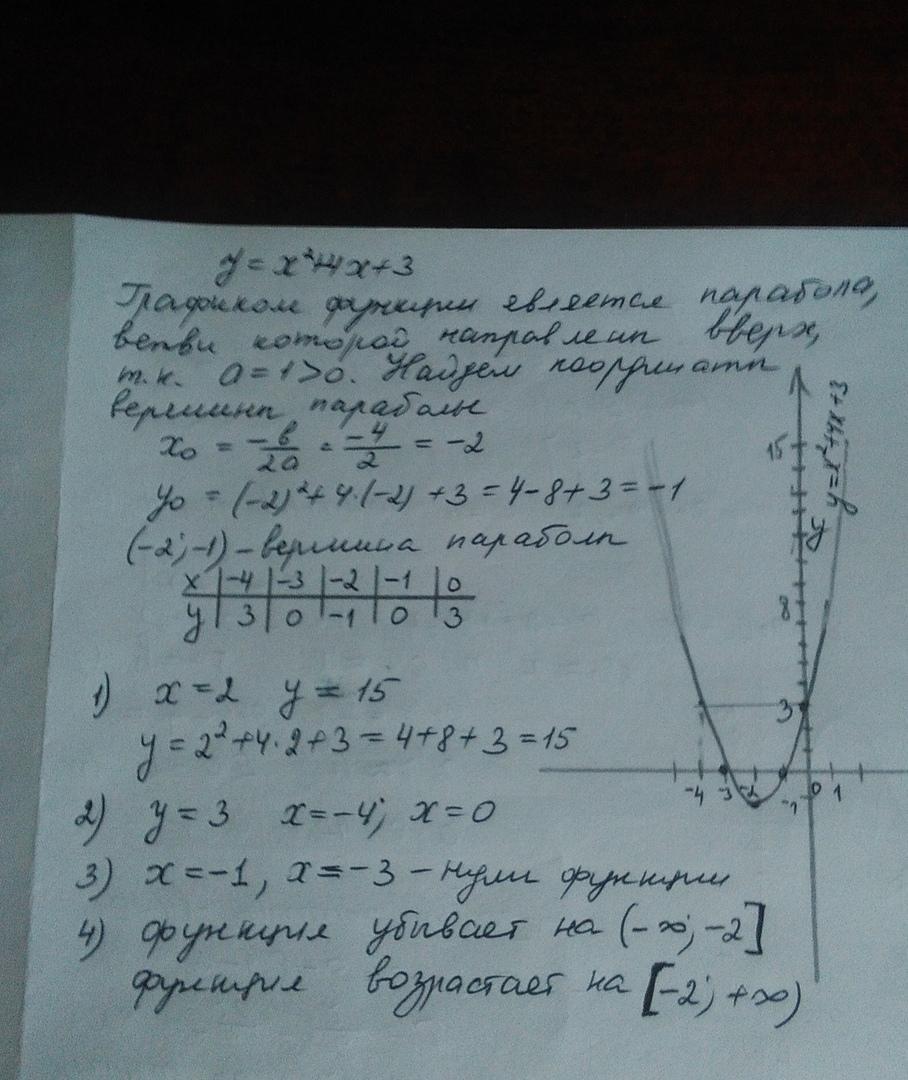 y = x²+4x+3
Графиком функции является парабола,
ветви которой направлены вверх,
т.к. a = 1 > 0. Найдем координаты
вершины параболы
x₀ = -b/2a = -4/2 = -2
y₀ = (-2)²+4·(-2)+3 = 4-8+3 = -1
(-2; -1) - вершина параболы
x | -4 | -3 | -2 | -1 | 0
y | 3 | 0 | -1 | 0 | 3
1) x = 2 y = 15
y = 2²+4·2+3 = 4+8+3 = 15
2) y = 3 x = -4; x = 0
3) x = -1, x = -3 - нули функции
4) функция убывает на (-∞; -2]
функция возрастает на [-2; +∞)
y = x²+4x+3
y
15
8
3
-4 -3 -2 0 1
-1